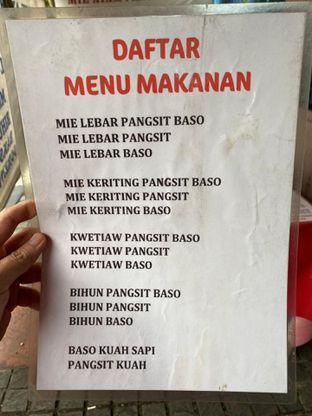 DAFTAR
MENU MAKANAN
MIE LEBAR PANGSIT BASO
MIE LEBAR PANGSIT
MIE LEBAR BASO
MIE KERITING PANGSIT BASO
MIE KERITING PANGSIT
MIE KERITING BASO
KWETIAW PANGSIT BASO
KWETIAW PANGSIT
KWETIAW BASO
BIHUN PANGSIT BASO
BIHUN PANGSIT
BIHUN BASO
BASO KUAH SAPI
PANGSIT KUAH